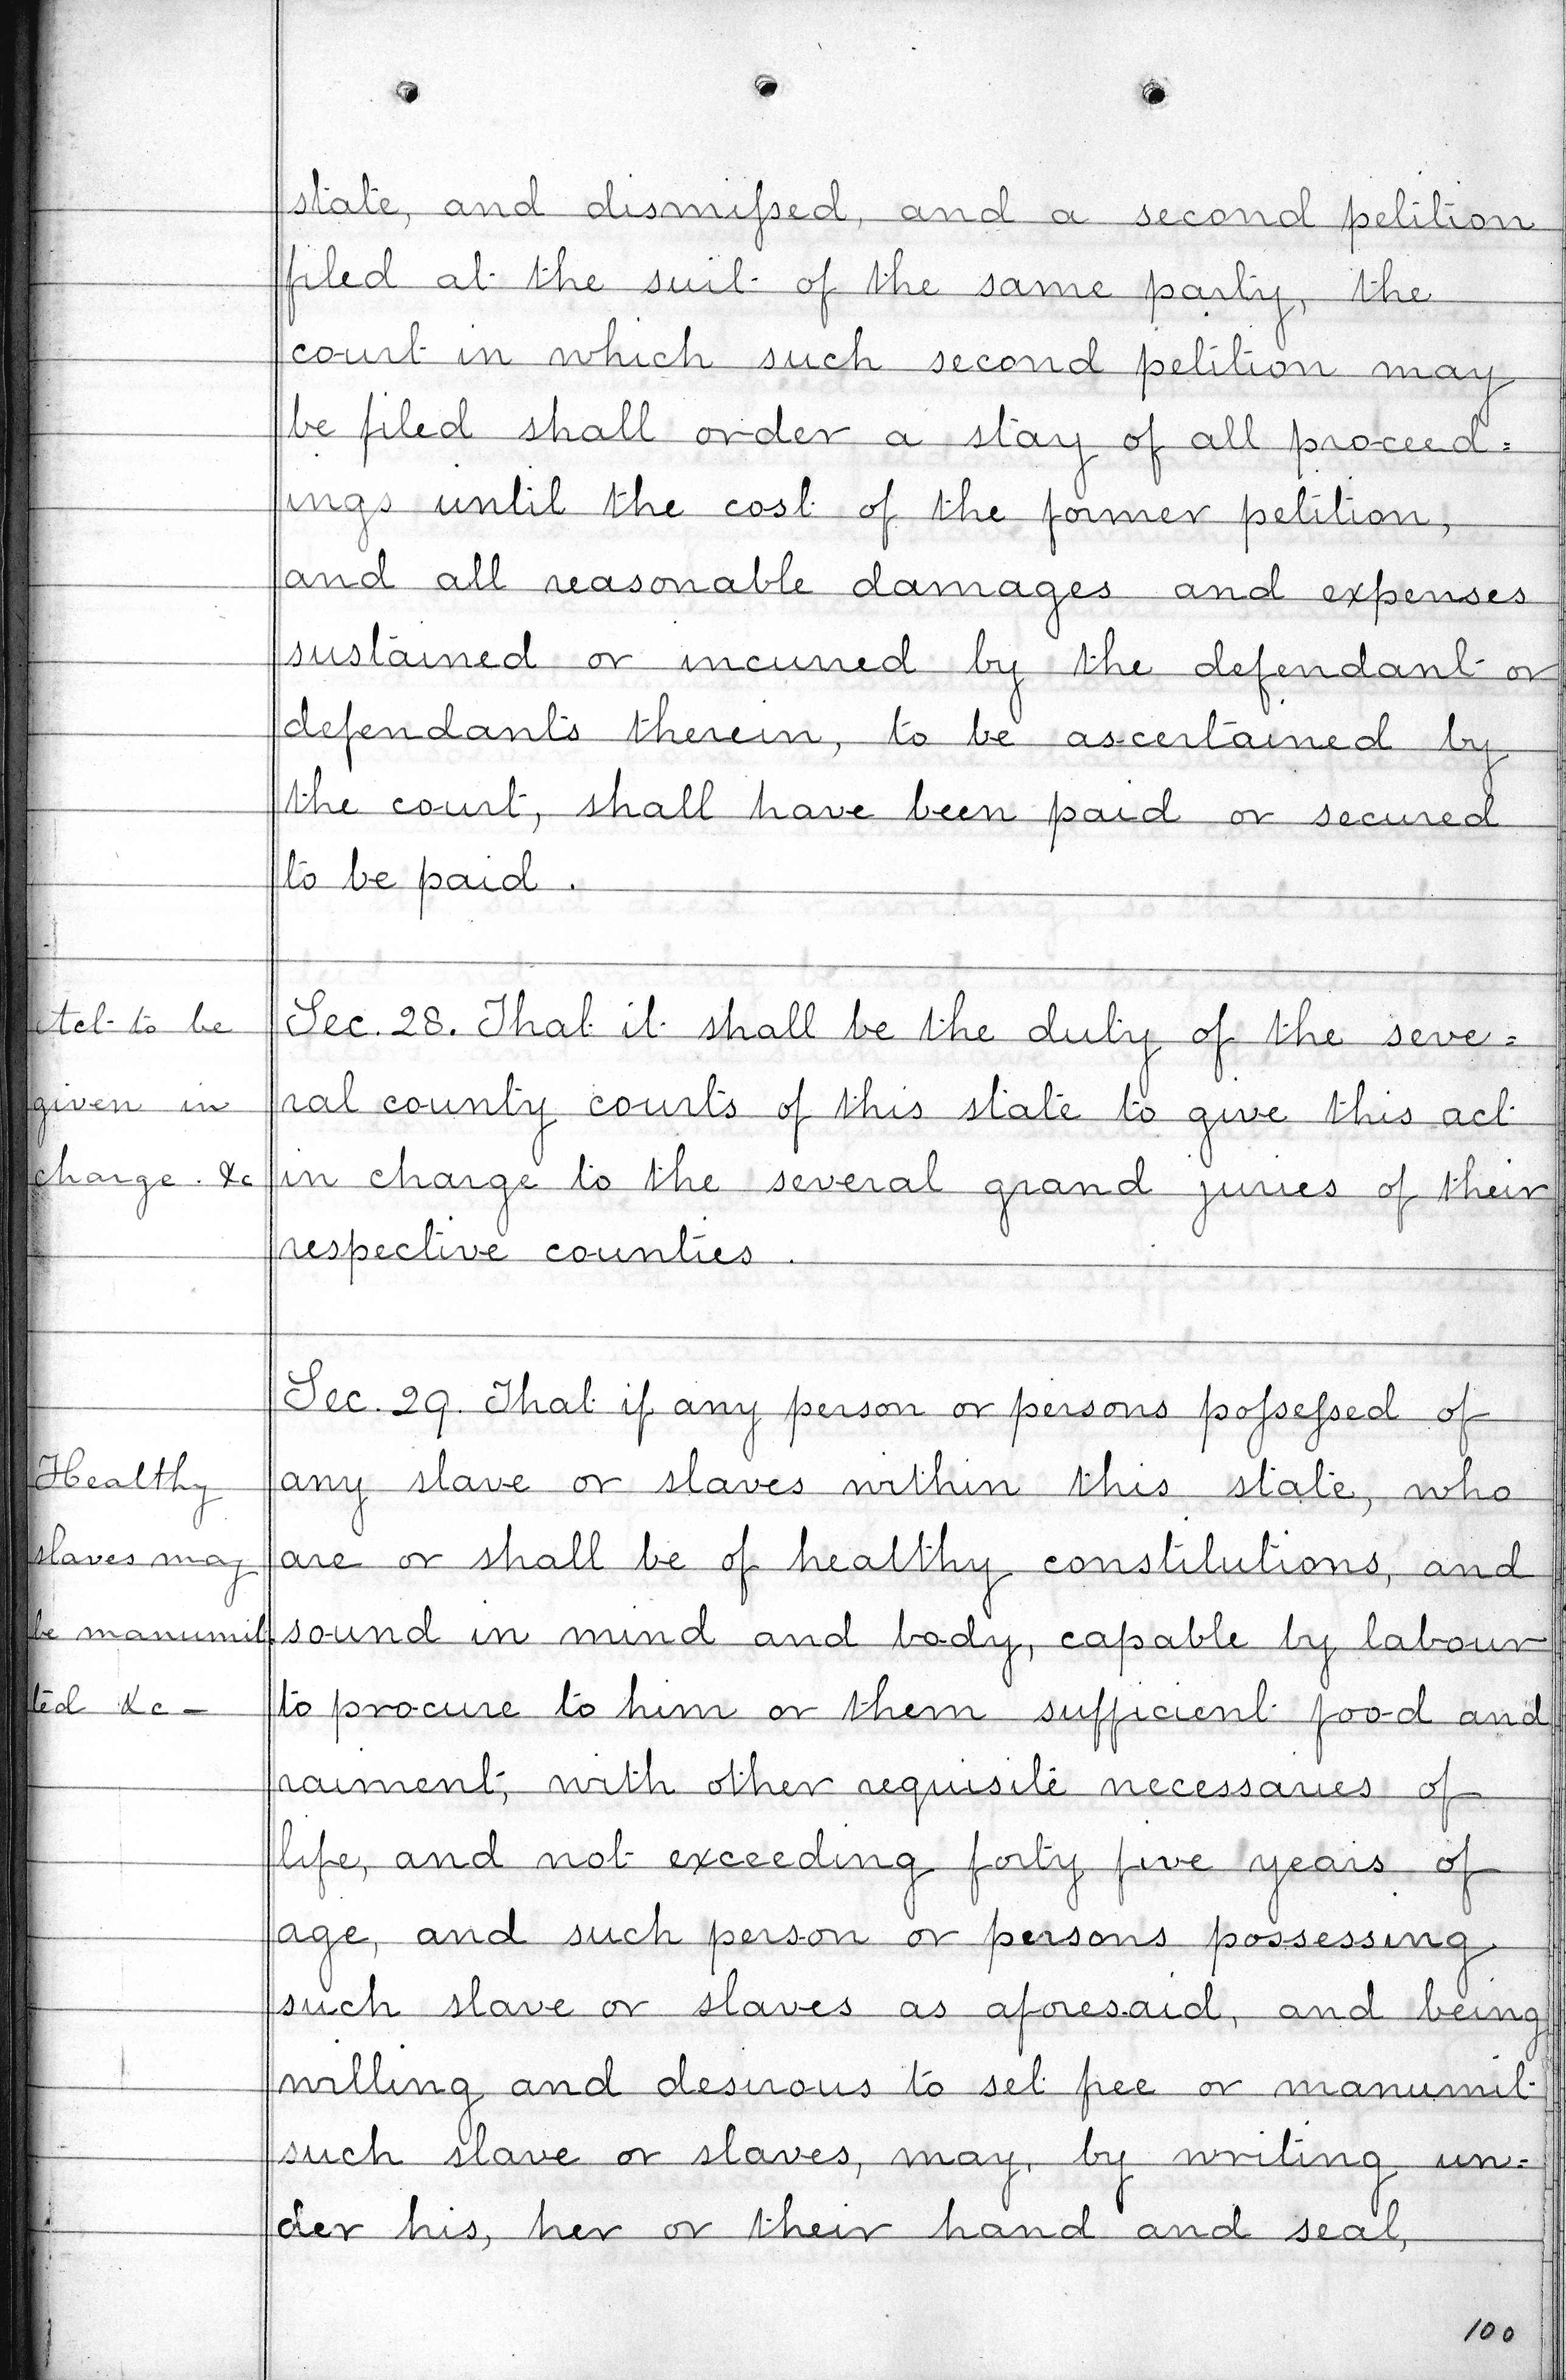 state, and dismiſsed, and a second petition
filed at the suit of the same party, the
court in which such second petition may
be filed shall order a stay of all proceed=
ings until the cost of the former petition,
and all reasonable damages and expenses
sustained or incurred by the defendant or
defendants therein, to be ascertained by
the court, shall have been paid or secured
to be paid.
Act to be
given in
charge. &c
Sec. 28. That it shall be the duty of the seve=
ral county courts of this state to give this act
in charge to the several grand juries of their
respective counties.
Healthy
slaves may
be manumit=
ted &c -
Sec. 29. That if any person or persons poſseſsed of
any slave or slaves within this state, who
are or shall be of healthy constitutions, and
sound in mind and body, capable by labour
to procure to him or them sufficient food and
raiment, with other requisite necessaries of
life, and not exceeding forty five years of
age, and such person or persons possessing
such slave or slaves as aforesaid, and being
willing and desirous to set free or manumit
such slave or slaves, may, by writing un=
der his, her or their hand and seal,
100